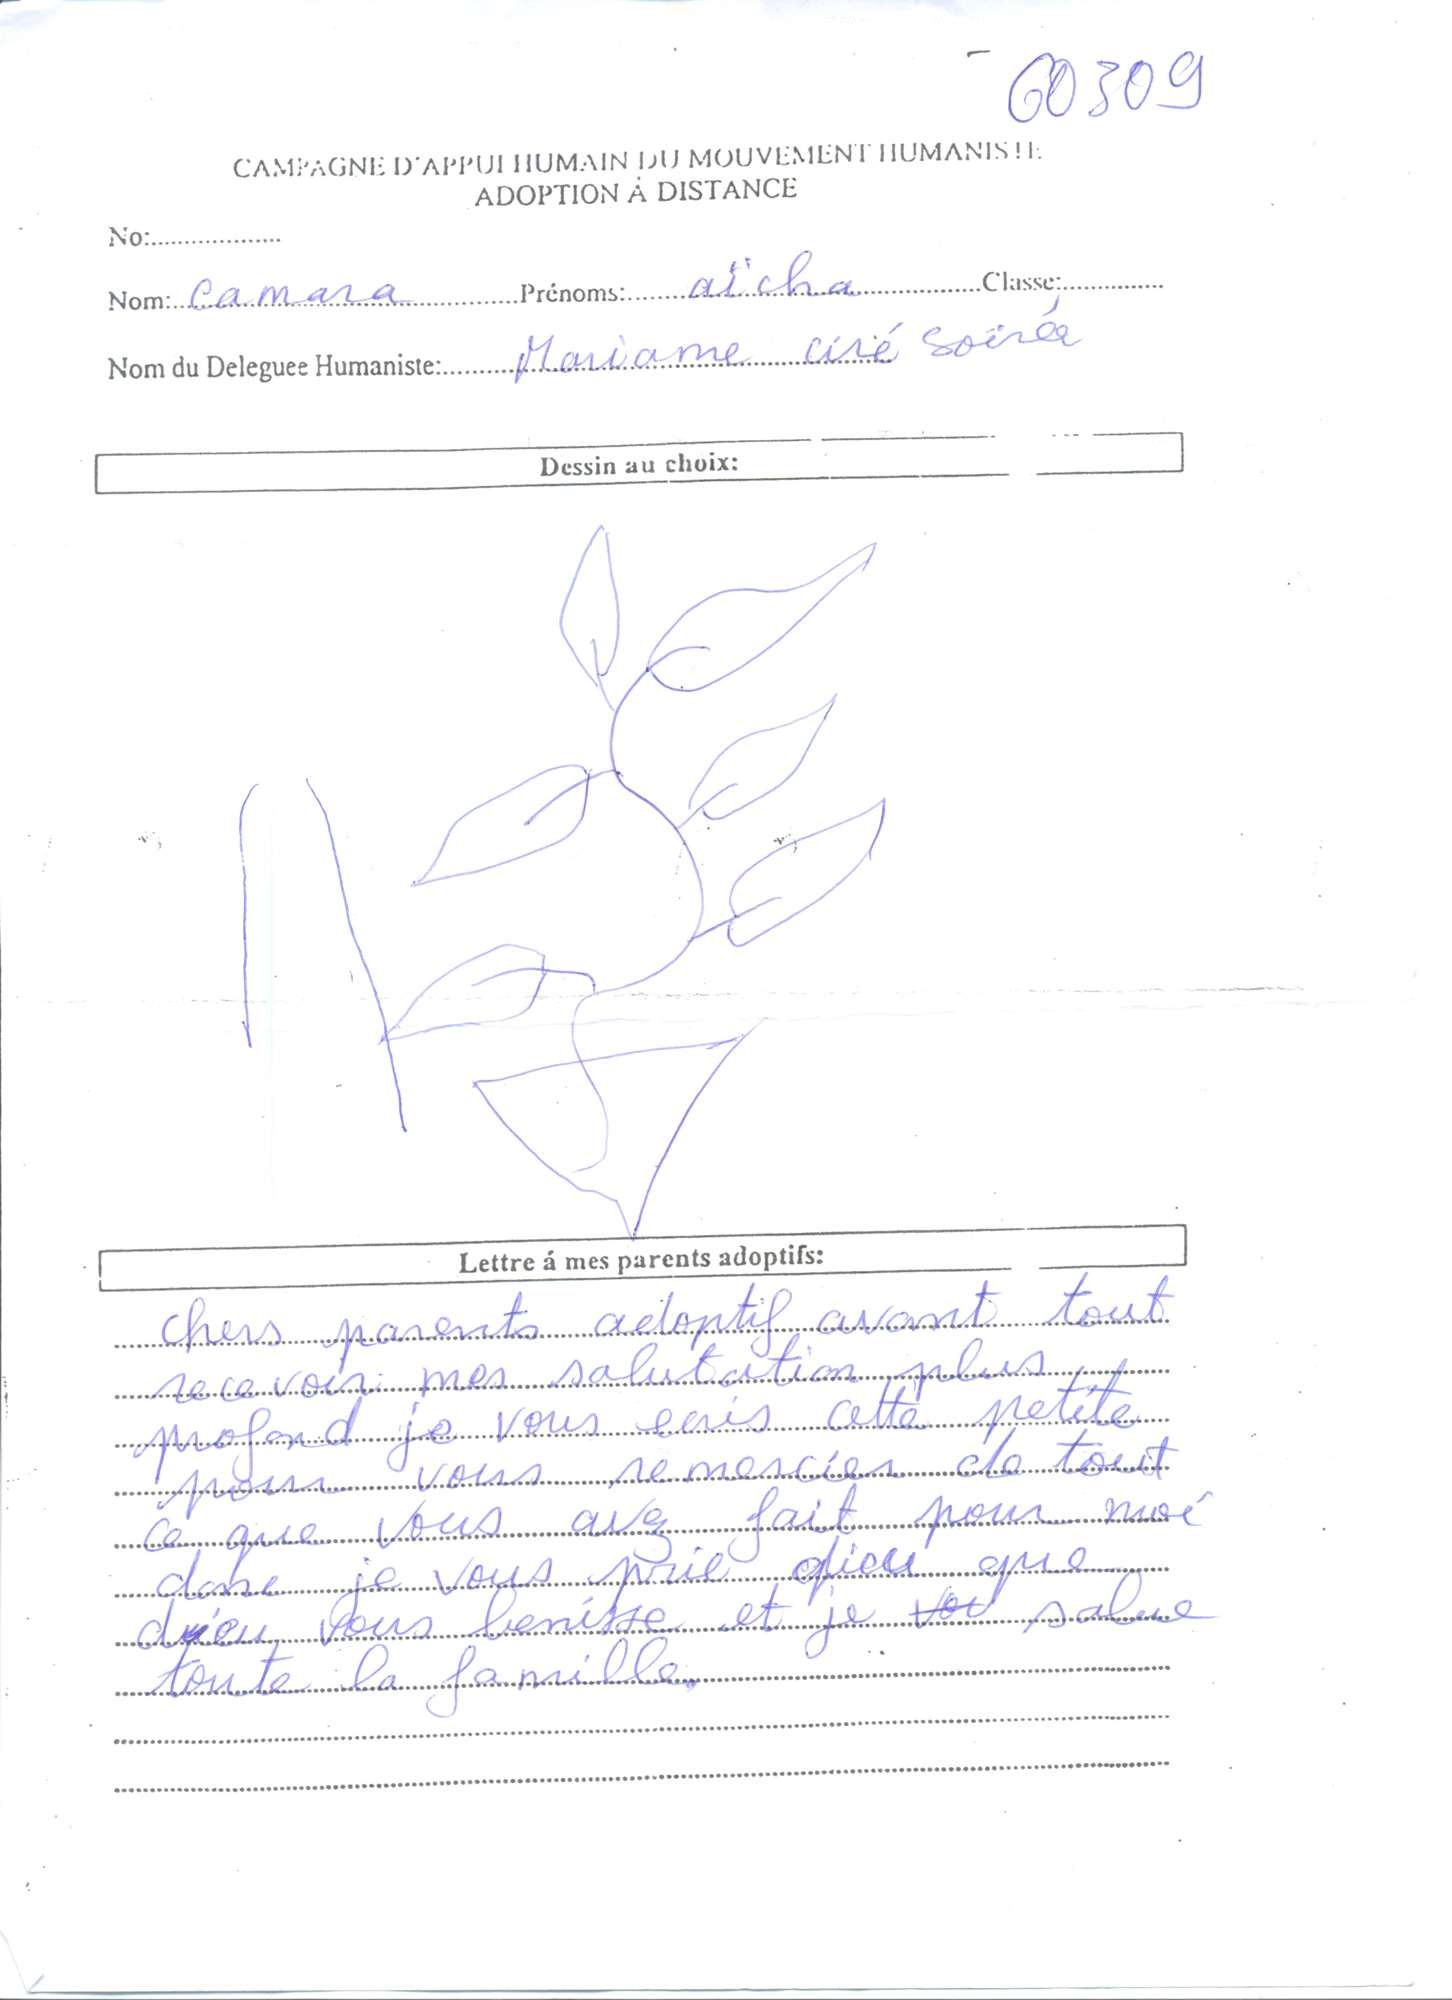 60309
CAMPAGNE D'APPUI HUMAIN DU MOUVEMENT HUMANISTE
ADOPTION À DISTANCE
No:...................
Nom: camara Prénoms: aïcha Classe:..............
Nom du Deleguee Humaniste: Mariame ciré soirée
Dessin au choix:
Lettre á mes parents adoptifs:
chers parents adoptif avant tout
recevoir mes salutation plus
profond je vous ecris cette petite
pour vous remercier de tout
ce que vous avez fait pour moi
donc je vous prie dieu que
dieu vous benisse et je salue
toute la famille.